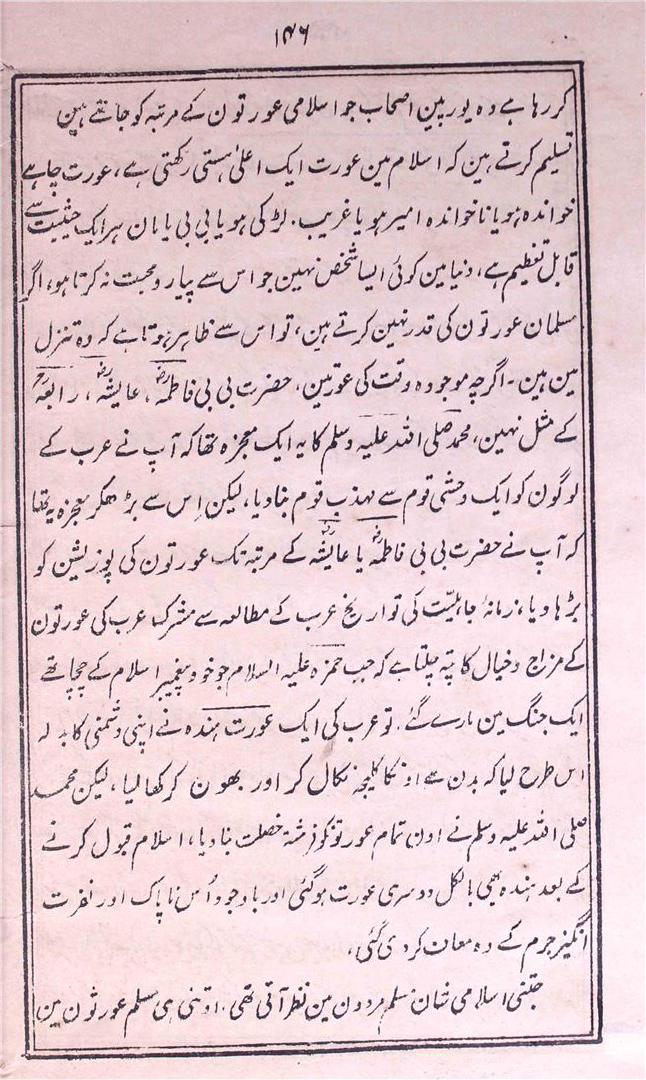 ۱۴۶
کر رہا ہے وہ یورپین اصحاب جو اسلامی عورتون کے مرتبہ کو جانتے ہین
تسلیم کرتے ہین کہ اسلام مین عورت ایک اعلیٰ ہستی رکھتی ہے، عورت چاہے
خواندہ ہو یا ناخواندہ امیر ہو یا غریب. لڑکی ہو یا بی بی یا مان ہر ایک حیثیت سے
قابل تعظیم ہے، دنیا مین کوئی ایسا شخص نہین جو اس سے پیار و محبت نہ کرتا ہو، اگر
مسلمان عورتون کی قدر نہین کرتے ہین، تو اس سے ظاہر ہوتا ہے کہ وہ تنزل
مین ہین۔ اگرچہ موجودہ وقت کی عورتین، حضرت بی بی فاطمہؓ، عایشہؓ، رابعہؒ
کے مثل نہین، محمد صلی اللہ علیہ وسلم کا یہ ایک معجزہ تھا کہ آپ نے عرب کے
لوگون کو ایک وحشی قوم سے مہذب قوم بنا دیا، لیکن اِس سے بڑھکر معجزہ یہ تھا
کہ آپ نے حضرت بی بی فاطمہؓ یا عایشہؓ کے مرتبہ تک عورتون کی پوزیشن کو
بڑھا دیا، زمانۂ جاہلیّت کی تواریخ عرب کے مطالعہ سے مشرکہ عرب کی عورتون
کے مزاج و خیال کا پتہ چلتا ہے کہ جب حمزہ علیہ السلام جو خود پیغمبر اسلام کے چچا تھے
ایک جنگ مین مارے گئے. تو عرب کی ایک عورت ہندہ نے اپنی دشمنی کا بدلہ
اس طرح لیا کہ بدن سے اونکا کلیجہ نکال کر اور بھون کر کھا لیا، لیکن محمد
صلی اللہ علیہ وسلم نے اون تمام عورتونکو فرشتہ خصلت بنا دیا، اسلام قبول کرنے
کے بعد ہندہ بھی بالکل دوسری عورت ہوگئی اور باوجود اُس ناپاک اور نفرت
انگیز جرم کے وہ معاف کر دی گئی،
جتنی اسلامی شان مسلم مردون مین نظر آتی تھی. اوتنی ہی مسلم عورتون مین